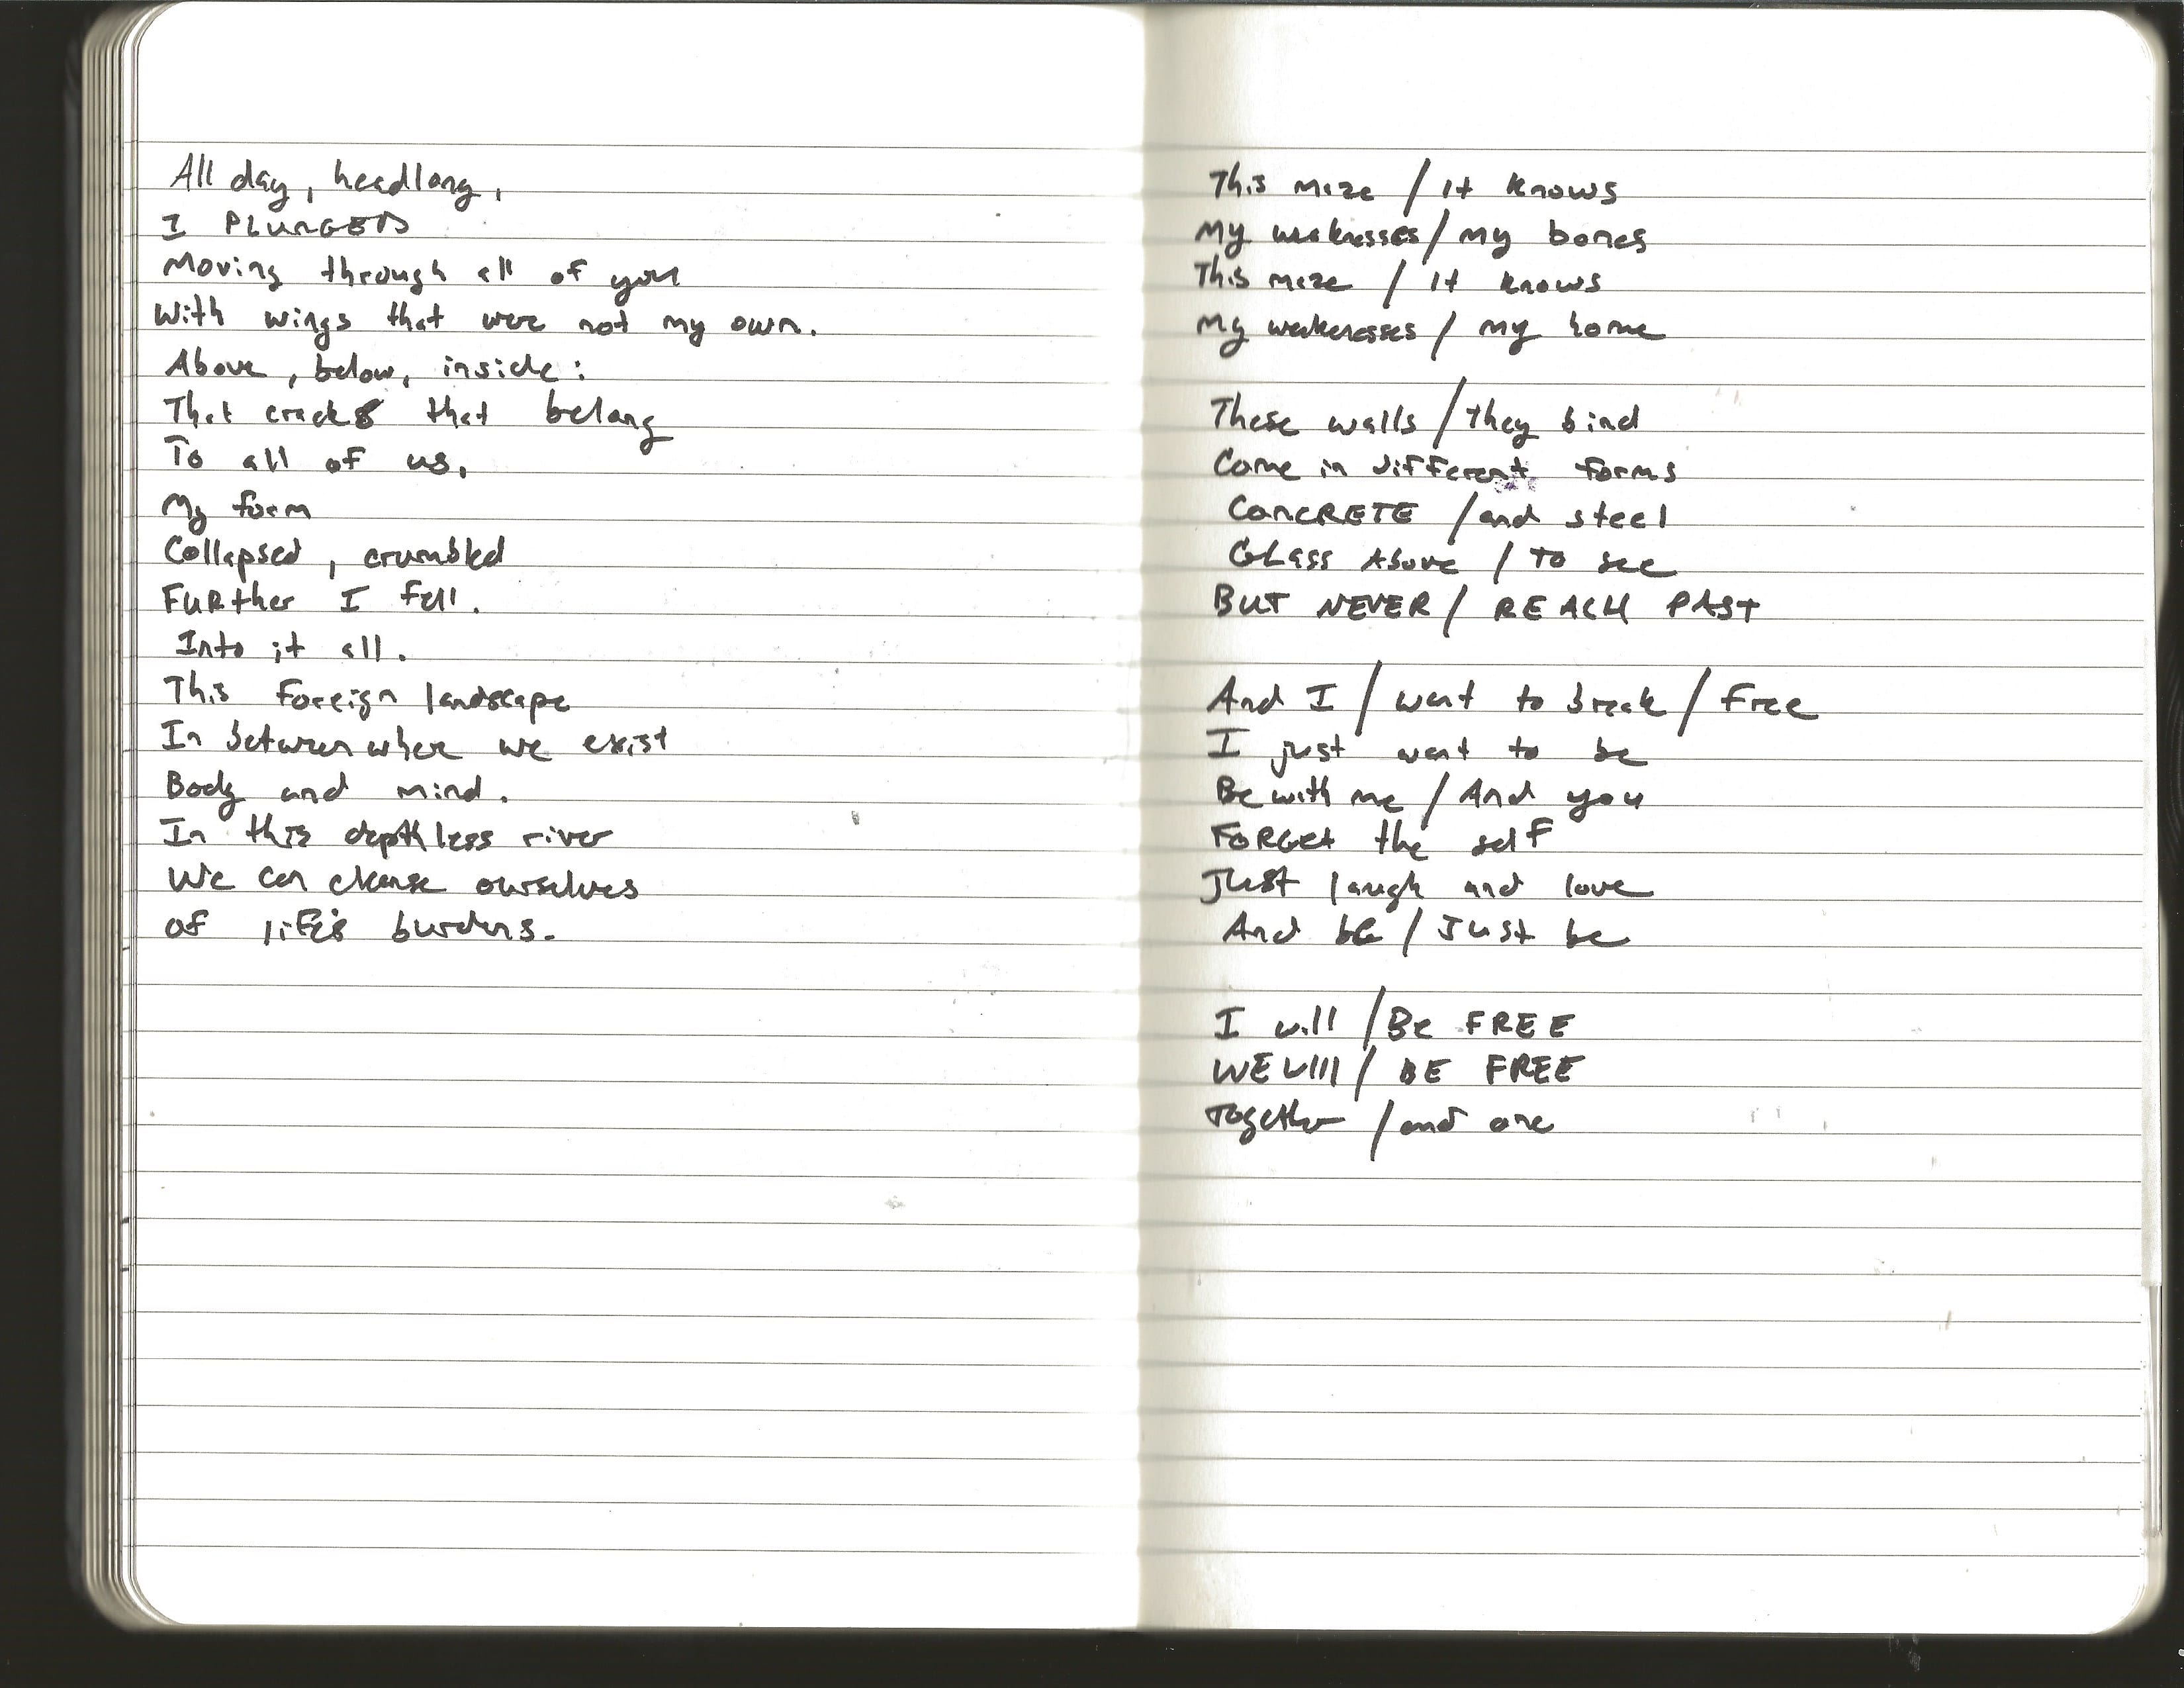 All day, headlong,
I PLUNGED
Moving through all of you
With wings that were not my own.
Above, below, inside:
That cracks that belong
To all of us.
My form
Collapsed, crumbled
FuRther I fell.
Into it all.
This foreign landscape
In between where we exist
Body and mind.
In this depthless river
We can cleanse ourselves
of life's burdens.
This maze / it knows
My weaknesses / my bones
This maze / It knows
My weaknesses / my home
These walls / they bind
Come in different forms
CONCRETE / and steel
GLass Above / To see
BUT NEVER / REACH PAST
And I / want to break / Free
I just want to be
Be with me / And you
FoRGet the self
Just laugh and love
And be / Just be
I will / Be FREE
WE WIll / BE FREE
Together / and one